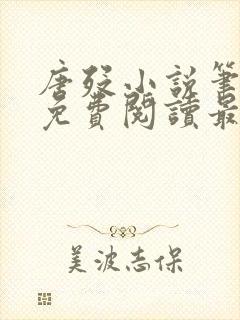 唐殁小説筆
免費閱讀最
美波志保